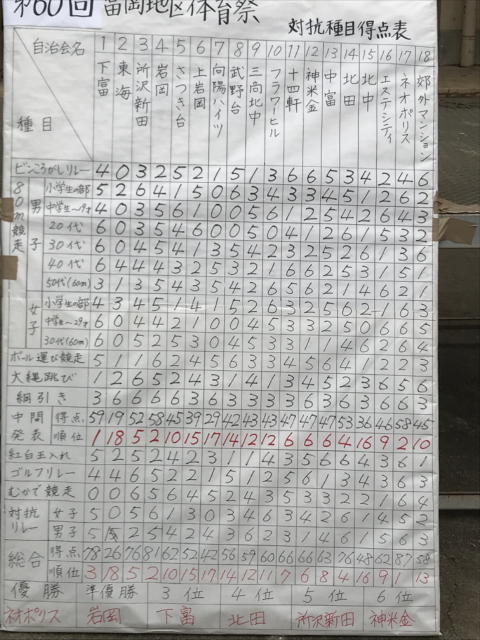 第60回 富岡地区体育祭
対抗種目得点表
自治会名 1 2 3 4 5 6 7 8 9 10 11 12 13 14 15 16 17 18
種目 下富 東海 所沢新田 岩岡 さつき台 上岩岡 向陽ハイツ 武野台 三向北中 フラワーヒル 十四軒 神米金 中富 北田 北中 エステシティ ネオポリス 郊外マンション
ビンころがしリレー 4 0 3 2 5 2 1 5 1 3 6 6 5 3 4 2 4 6
80m競走
男子
小学生の部 5 2 6 4 1 5 0 6 3 4 3 3 4 5 1 2 6 2
中学生〜19才 4 0 3 5 6 1 0 0 5 6 1 2 5 4 2 6 4 3
20代 6 0 3 5 4 6 0 0 5 0 4 1 2 6 1 5 3 2
30代 6 0 4 5 4 1 3 5 4 2 3 2 5 2 6 1 3 6
40代 6 4 4 4 3 2 5 3 2 1 6 6 2 5 3 1 5 1
50代(60m) 3 1 3 5 4 3 5 4 2 6 5 6 2 1 4 6 2 1
女子
小学生の部 4 3 4 5 1 4 1 5 2 6 3 2 5 6 2 1 6 3
中学生〜29才 6 0 4 4 2 1 0 0 4 5 3 3 2 5 0 6 6 5
30代(60m) 6 0 5 2 5 3 0 4 5 3 3 1 1 4 6 2 6 4
ボール運び競走 5 1 1 6 2 4 5 6 3 3 4 5 6 4 1 2 2 3
大縄跳び 1 2 6 5 2 4 3 1 4 1 3 4 5 2 3 6 5 6
綱引き 3 6 6 6 6 3 6 3 3 3 3 6 3 6 3 6 6 3
中間発表
得点 59 19 52 58 45 39 29 42 43 43 47 47 47 53 36 46 58 45
順位 1 18 5 2 10 15 17 14 12 12 6 6 6 4 16 9 2 10
紅白玉入れ 5 2 5 2 4 2 3 1 1 4 3 5 6 6 4 3 6 1
ゴルフリレー 4 4 6 5 2 2 1 5 1 2 5 6 1 3 4 3 6 3
むかで競走 0 0 6 5 6 4 5 2 4 3 5 3 3 2 2 1 6 4
対抗リレー
女子 5 0 5 6 1 3 0 3 4 6 3 4 2 6 1 4 5 2
男子 5 2 5 4 2 4 3 6 2 3 1 4 6 1 5 6 3
総合
得点 78 26 76 81 62 52 42 56 59 60 66 66 63 76 48 62 87 58
順位 3 18 5 2 10 15 17 14 12 11 7 6 8 4 16 9 1 13
優勝 準優勝 3位 4位 5位 6位
ネオポリス 岩岡 下富 北田 所沢新田 神米金